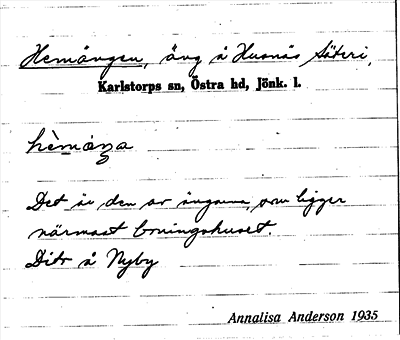 Hemängen, äng å Husnäs Säteri,
Karlstorps sn, Östra hd, Jönk. l.
hèmáŋa
Det är den av ängarna, som ligger
närmast boningshuset.
Dito å Nyby
Annalisa Anderson 1935